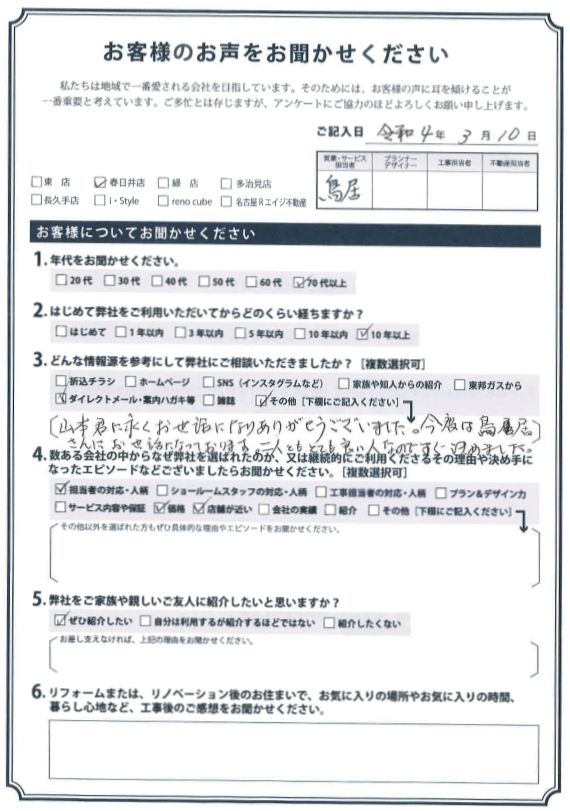 お客様のお声をお聞かせください
私たちは地域で一番愛される会社を目指しています。そのためには、お客様の声に耳を傾けることが
一番重要と考えています。ご多忙とは存じますが、アンケートにご協力のほどよろしくお願い申し上げます。
ご記入日 令和4年 3月10日
営業・サービス担当者 プランナーデザイナー 工事担当者 不動産担当者
鳥居
□東 店 ☑春日井店 □緑 店 □多治見店
□長久手店 □i・Style □reno cube □名古屋Rエイジ不動産
お客様についてお聞かせください
1. 年代をお聞かせください。
□20代 □30代 □40代 □50代 □60代 ☑70代以上
2. はじめて弊社をご利用いただいてからどのくらい経ちますか？
□はじめて □1年以内 □3年以内 □5年以内 □10年以内 ☑10年以上
3. どんな情報源を参考にして弊社にご相談いただきましたか？［複数選択可］
□折込チラシ □ホームページ □SNS（インスタグラムなど） □家族や知人からの紹介 □東邦ガスから
☑ダイレクトメール・案内ハガキ等 □雑誌 ☑その他［下欄にご記入ください］
山本君に永くお世話になりありがとうございました。今度は鳥居
さんにお世話になっております。二人ともとても良い人なのですぐ決めました。
4. 数ある会社の中からなぜ弊社を選ばれたのか、又は継続的にご利用くださるその理由や決め手に
なったエピソードなどございましたらお聞かせください。［複数選択可］
☑担当者の対応・人柄 □ショールームスタッフの対応・人柄 □工事担当者の対応・人柄 □プラン&デザイン力
□サービス内容や保証 ☑価格 ☑店舗が近い □会社の実績 □紹介 □その他［下欄にご記入ください］
その他以外を選ばれた方もぜひ具体的な理由やエピソードをお聞かせください。
5. 弊社をご家族や親しいご友人に紹介したいと思いますか？
☑ぜひ紹介したい □自分は利用するが紹介するほどではない □紹介したくない
お差し支えなければ、上記の理由をお聞かせください。
6. リフォームまたは、リノベーション後のお住まいで、お気に入りの場所やお気に入りの時間、
暮らし心地など、工事後のご感想をお聞かせください。